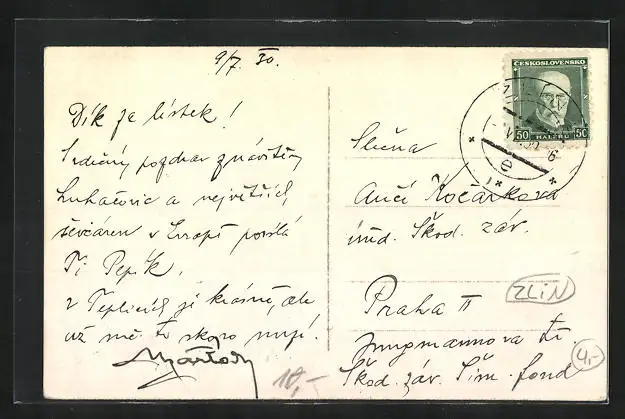 9/7. 30.
Dík za lístek!
Srdečný pozdrav z návštěvy
Luhačovic a největších
ševčáren v Evropě posílá
Ti Pepík.
V Teplicích je krásně, ale
už mě to skoro nudí.
10,-
ČESKOSLOVENSKO
50 HALÉŘŮ 50
e
Slečna
Anči Kočárková
úřed. Škod. záv.
Praha II
Jungmannova tř.
Škod. záv. fond
ZLÍN
4,-